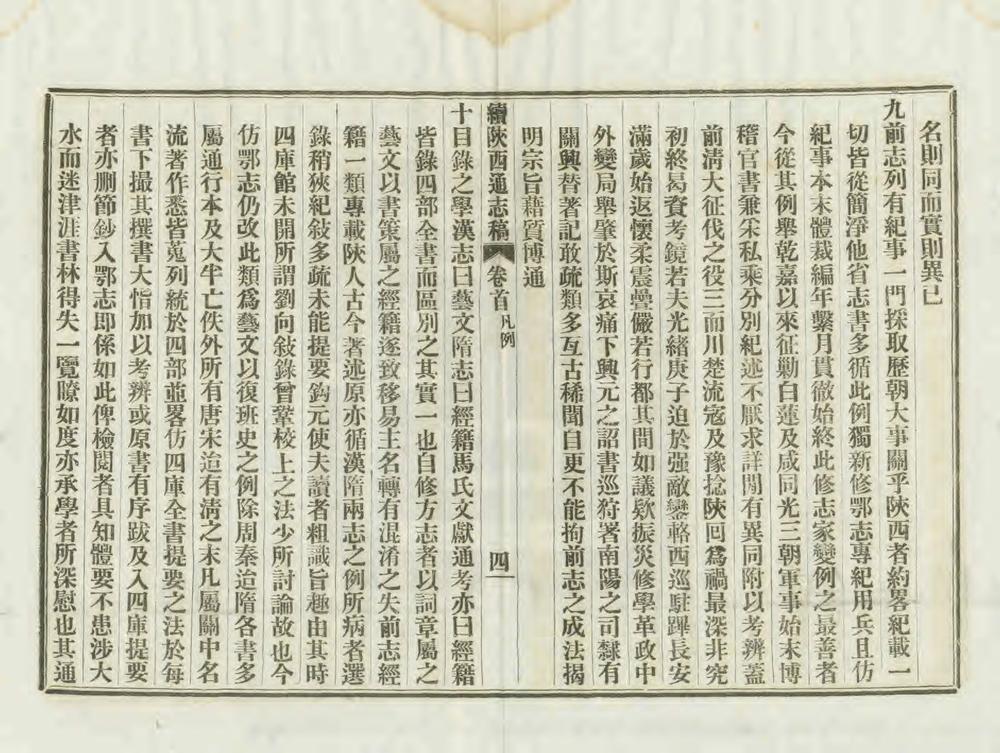 名則同而實則異已
九前志列有紀事一門採取歷朝大事關乎陝西者約畧紀載一
切皆從簡淨他省志書多循此例獨新修鄂志專紀用兵且仿
紀事本末體裁編年繫月貫徹始終此修志家變例之最善者
今從其例舉乾嘉以來征勦白蓮及咸同光三朝軍事始末博
稽官書兼采私乘分別紀述不厭求詳閒有異同附以考辨蓋
前清大征伐之役三而川楚流寇及豫捻陝回爲禍最深非究
初終曷資考鏡若夫光緒庚子迫於强敵鑾輅西巡駐蹕長安
滿歲始返懷柔震疊儼若行都其間如議欵振災修學革政中
外變局舉肇於斯哀痛下興元之詔書巡狩畧南陽之司隸有
關興替著記敢疏類多互古稀聞自更不能拘前志之成法揭
明宗旨藉質博通
續陝西通志稿 卷首 凡例 四
十目錄之學漢志曰藝文隋志曰經籍馬氏文獻通考亦曰經籍
皆錄四部全書而區別之其實一也自修方志者以詞章屬之
藝文以書策屬之經籍遂致移易主名轉有混淆之失前志經
籍一類專載陝人古今著述原亦循漢隋兩志之例所病者選
錄稍狹紀敍多疏未能提要鈎元使夫讀者粗識旨趣由其時
四庫館未開所謂劉向敍錄曾鞏校上之法少所討論故也今
仿鄂志仍改此類爲藝文以復班史之例除周秦迨隋各書多
屬通行本及大半亡佚外所有唐宋迨有清之末凡屬關中名
流著作悉皆蒐列統於四部並畧仿四庫全書提要之法於每
書下撮其撰書大恉加以考辨或原書有序跋及入四庫提要
者亦刪節鈔入鄂志即係如此俾檢閱者具知體要不患涉大
水而迷津涯書林得失一覽瞭如度亦承學者所深慰也其通